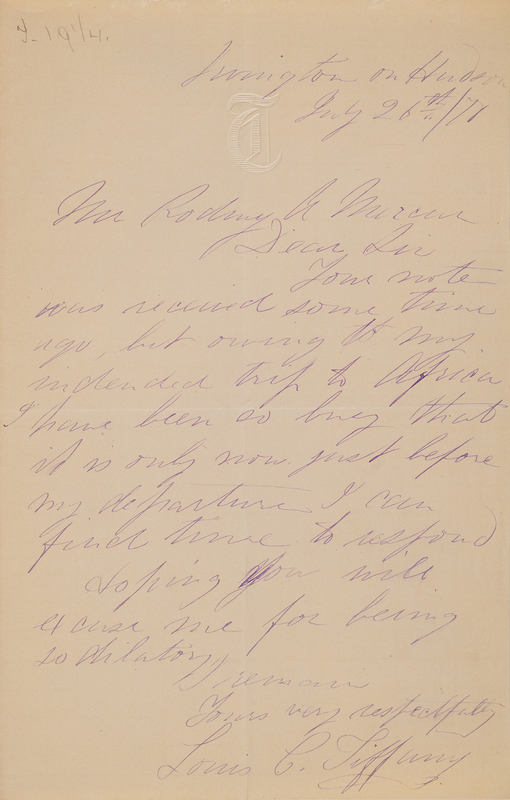 T-19 1/4.
Irvington on Hudson
July 26th/71
T
Mr Rodney A Mercur
Dear Sir
Your note
was received some time
ago, but owing to my
indended trip to Africa
I have been so busy that
it is only now just before
my departure I can
find time to respond
Hoping you will
excuse me for being
so dilatory
I remain
Yours very respectfully
Louis C. Tiffany